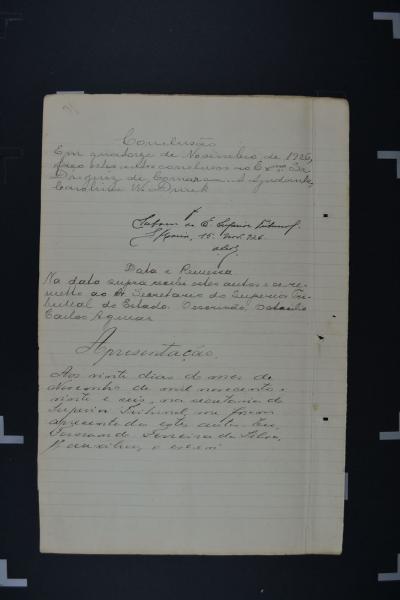 Conclusão
Em quatorze de Novembro de 1926,
faço estes autos conclusos ao Exmo. Sr.
Dr. Juiz de Comarca. O Ajudante,
Carolino W. Druck
Subam ao E. Superior Tribunal.
15. Nov. 926.
Data e Remessa
Na data supra recebi estes autos e os re-
metto ao Sr. Secretario do Superior Tri-
bunal do Estado. O escrivão, Octacilio
Carlos Aguiar
Apresentação.
Aos vinte dias do mes de
Novembro de mil novecentos e
vinte e seis, na secretaria do
Superior Tribunal, me foram
apresentados estes autos. Eu,
Fernando Ferreira da Silva,
1º auxiliar, o escrevi